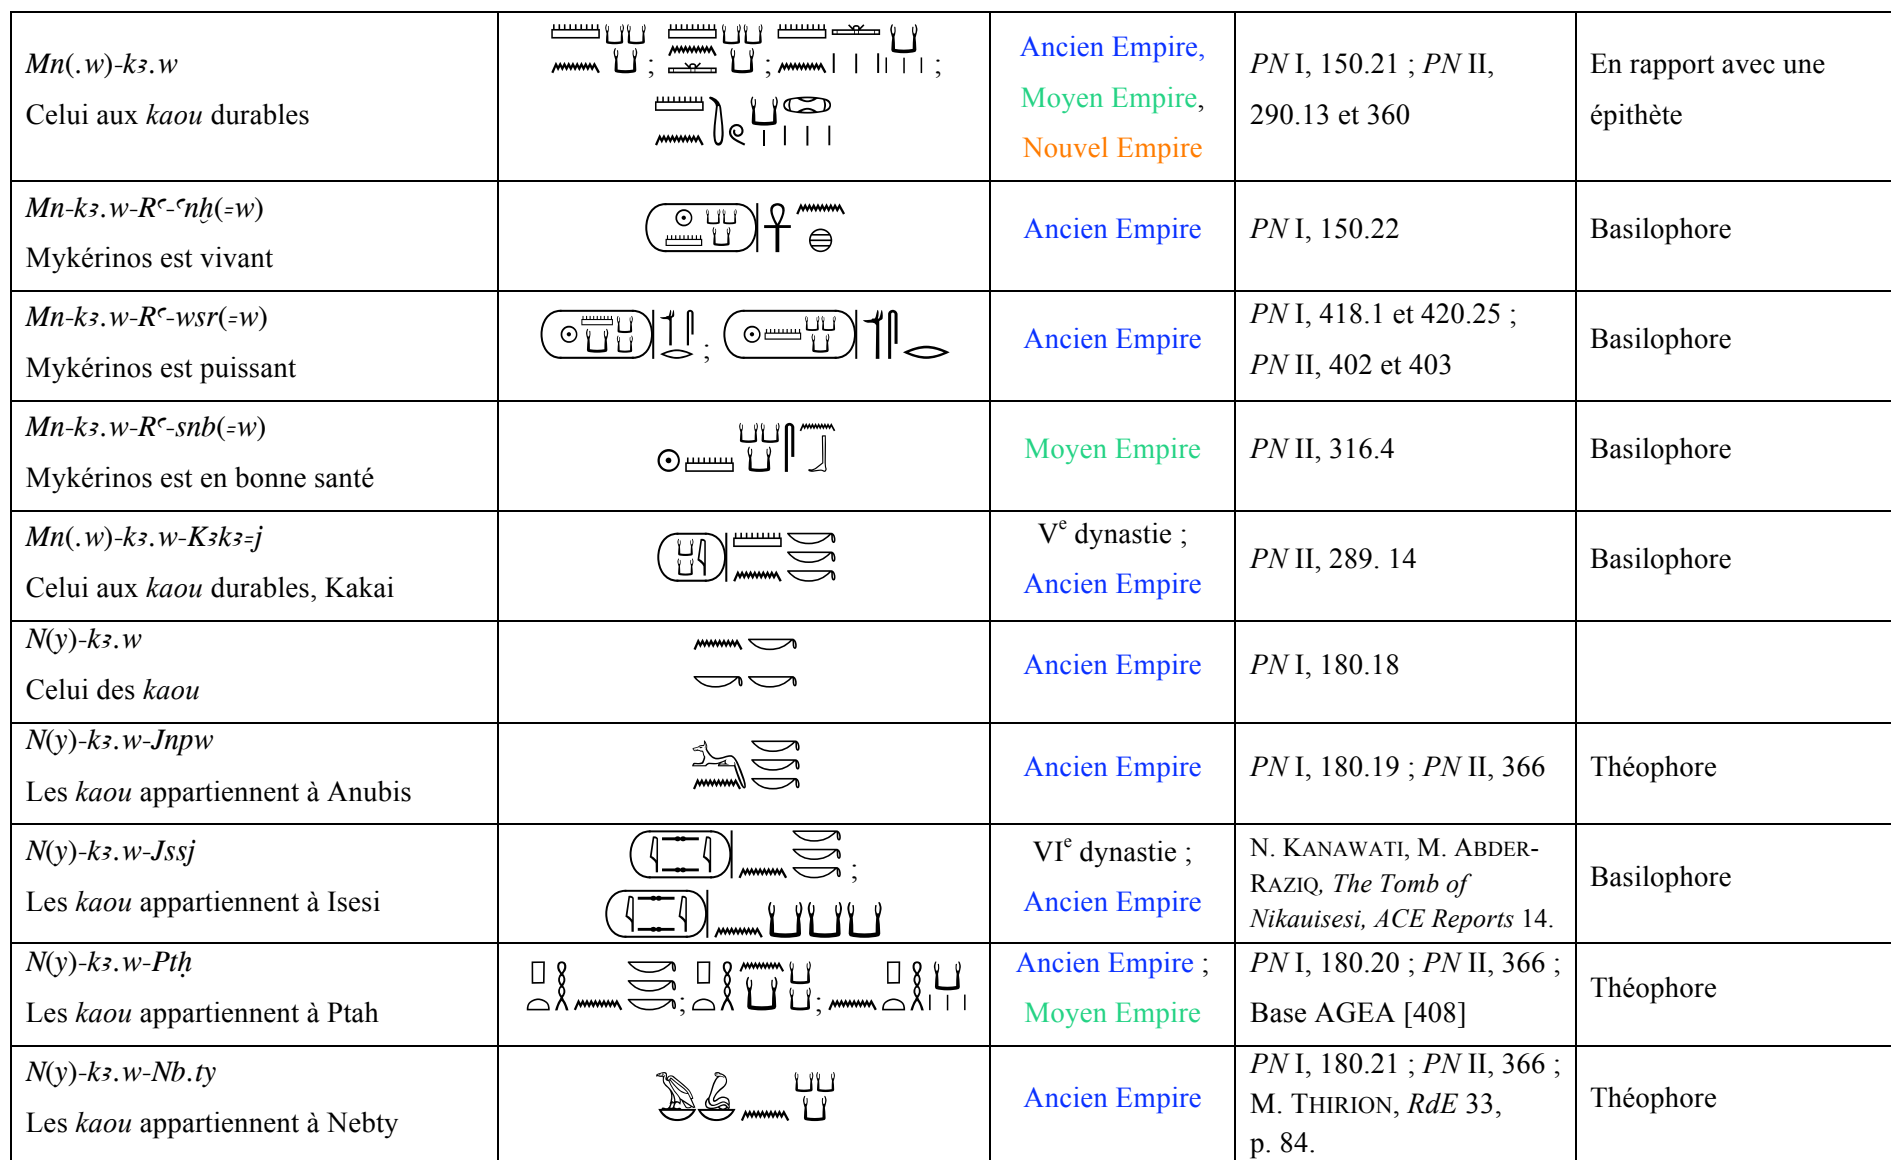 Mn(.w)-kꜣ.w
Celui aux kaou durables
; ; ;
Ancien Empire,
Moyen Empire,
Nouvel Empire
PN I, 150.21 ; PN II,
290.13 et 360
En rapport avec une
épithète
Mn-kꜣ.w-Rꜥ-ꜥnḫ(=w)
Mykérinos est vivant
Ancien Empire
PN I, 150.22
Basilophore
Mn-kꜣ.w-Rꜥ-wsr(=w)
Mykérinos est puissant
;
Ancien Empire
PN I, 418.1 et 420.25 ;
PN II, 402 et 403
Basilophore
Mn-kꜣ.w-Rꜥ-snb(=w)
Mykérinos est en bonne santé
Moyen Empire
PN II, 316.4
Basilophore
Mn(.w)-kꜣ.w-Kꜣkꜣ=j
Celui aux kaou durables, Kakai
Vᵉ dynastie ;
Ancien Empire
PN II, 289. 14
Basilophore
N(y)-kꜣ.w
Celui des kaou
Ancien Empire
PN I, 180.18
N(y)-kꜣ.w-Jnpw
Les kaou appartiennent à Anubis
Ancien Empire
PN I, 180.19 ; PN II, 366
Théophore
N(y)-kꜣ.w-Jssj
Les kaou appartiennent à Isesi
;
VIᵉ dynastie ;
Ancien Empire
N. KANAWATI, M. ABDER-
RAZIQ, The Tomb of
Nikauisesi, ACE Reports 14.
Basilophore
N(y)-kꜣ.w-Ptḥ
Les kaou appartiennent à Ptah
; ;
Ancien Empire ;
Moyen Empire
PN I, 180.20 ; PN II, 366 ;
Base AGEA [408]
Théophore
N(y)-kꜣ.w-Nb.ty
Les kaou appartiennent à Nebty
Ancien Empire
PN I, 180.21 ; PN II, 366 ;
M. THIRION, RdE 33,
p. 84.
Théophore